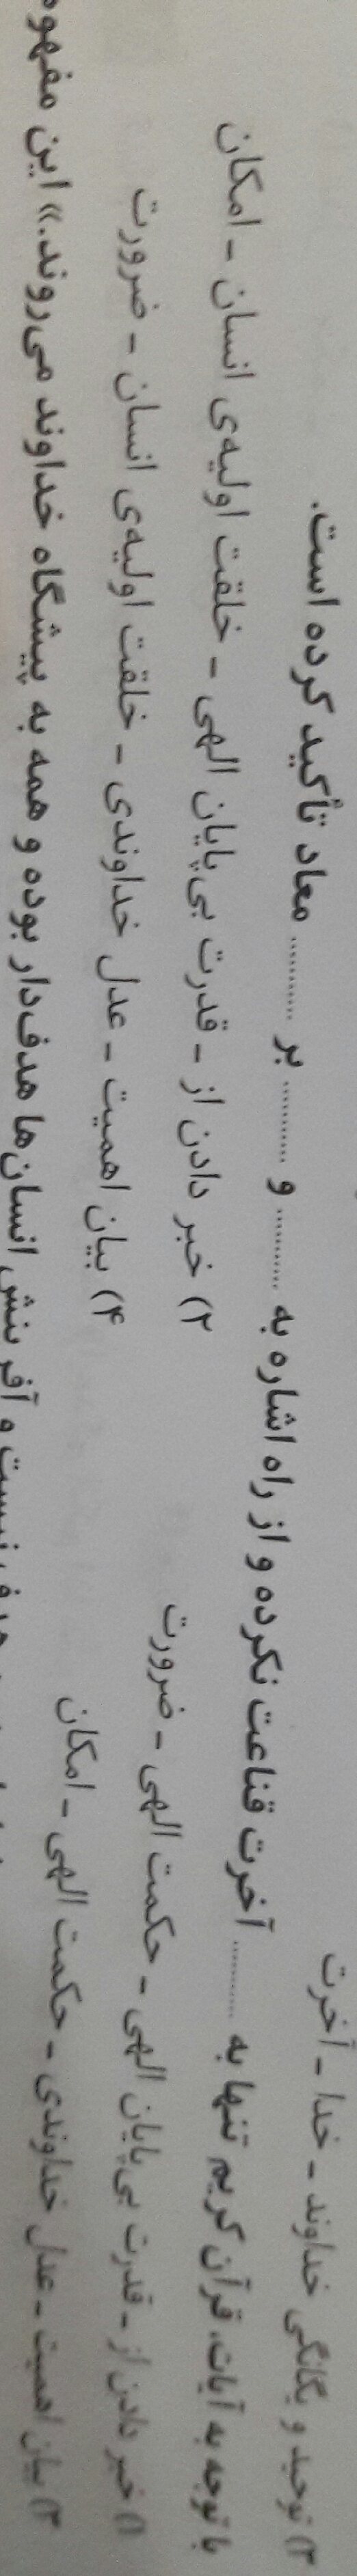 ۳) توحید و یگانگی خداوند - خدا - آخرت
با توجه به آیات، قرآن کریم تنها به .......... آخرت قناعت نکرده و از راه اشاره به .......... و .......... بر .......... معاد تأکید کرده است.
۱) خبر دادن از - قدرت بی‌پایان الهی - حکمت الهی - ضرورت
۲) خبر دادن از - قدرت بی‌پایان الهی - خلقت اولیه‌ی انسان - امکان
۳) بیان اهمیت - عدل خداوندی - حکمت الهی - امکان
۴) بیان اهمیت - عدل خداوندی - خلقت اولیه‌ی انسان - ضرورت
نیست و آفرینش انسان‌ها هدف‌دار بوده و همه به پیشگاه خداوند می‌روند.» این